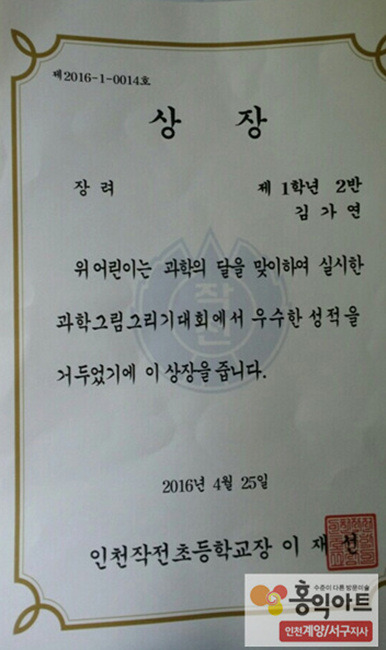 제2016-1-0014호
상 장
장 려 제 1학년 2반
김 가 연
위 어린이는 과학의 달을 맞이하여 실시한
과학그림그리기대회에서 우수한 성적을
거두었기에 이 상장을 줍니다.
작전
2016년 4월 25일
인천작전초등학교장 이 재 선
수준이 다른 방문미술
홍익아트
인천계양/서구지사